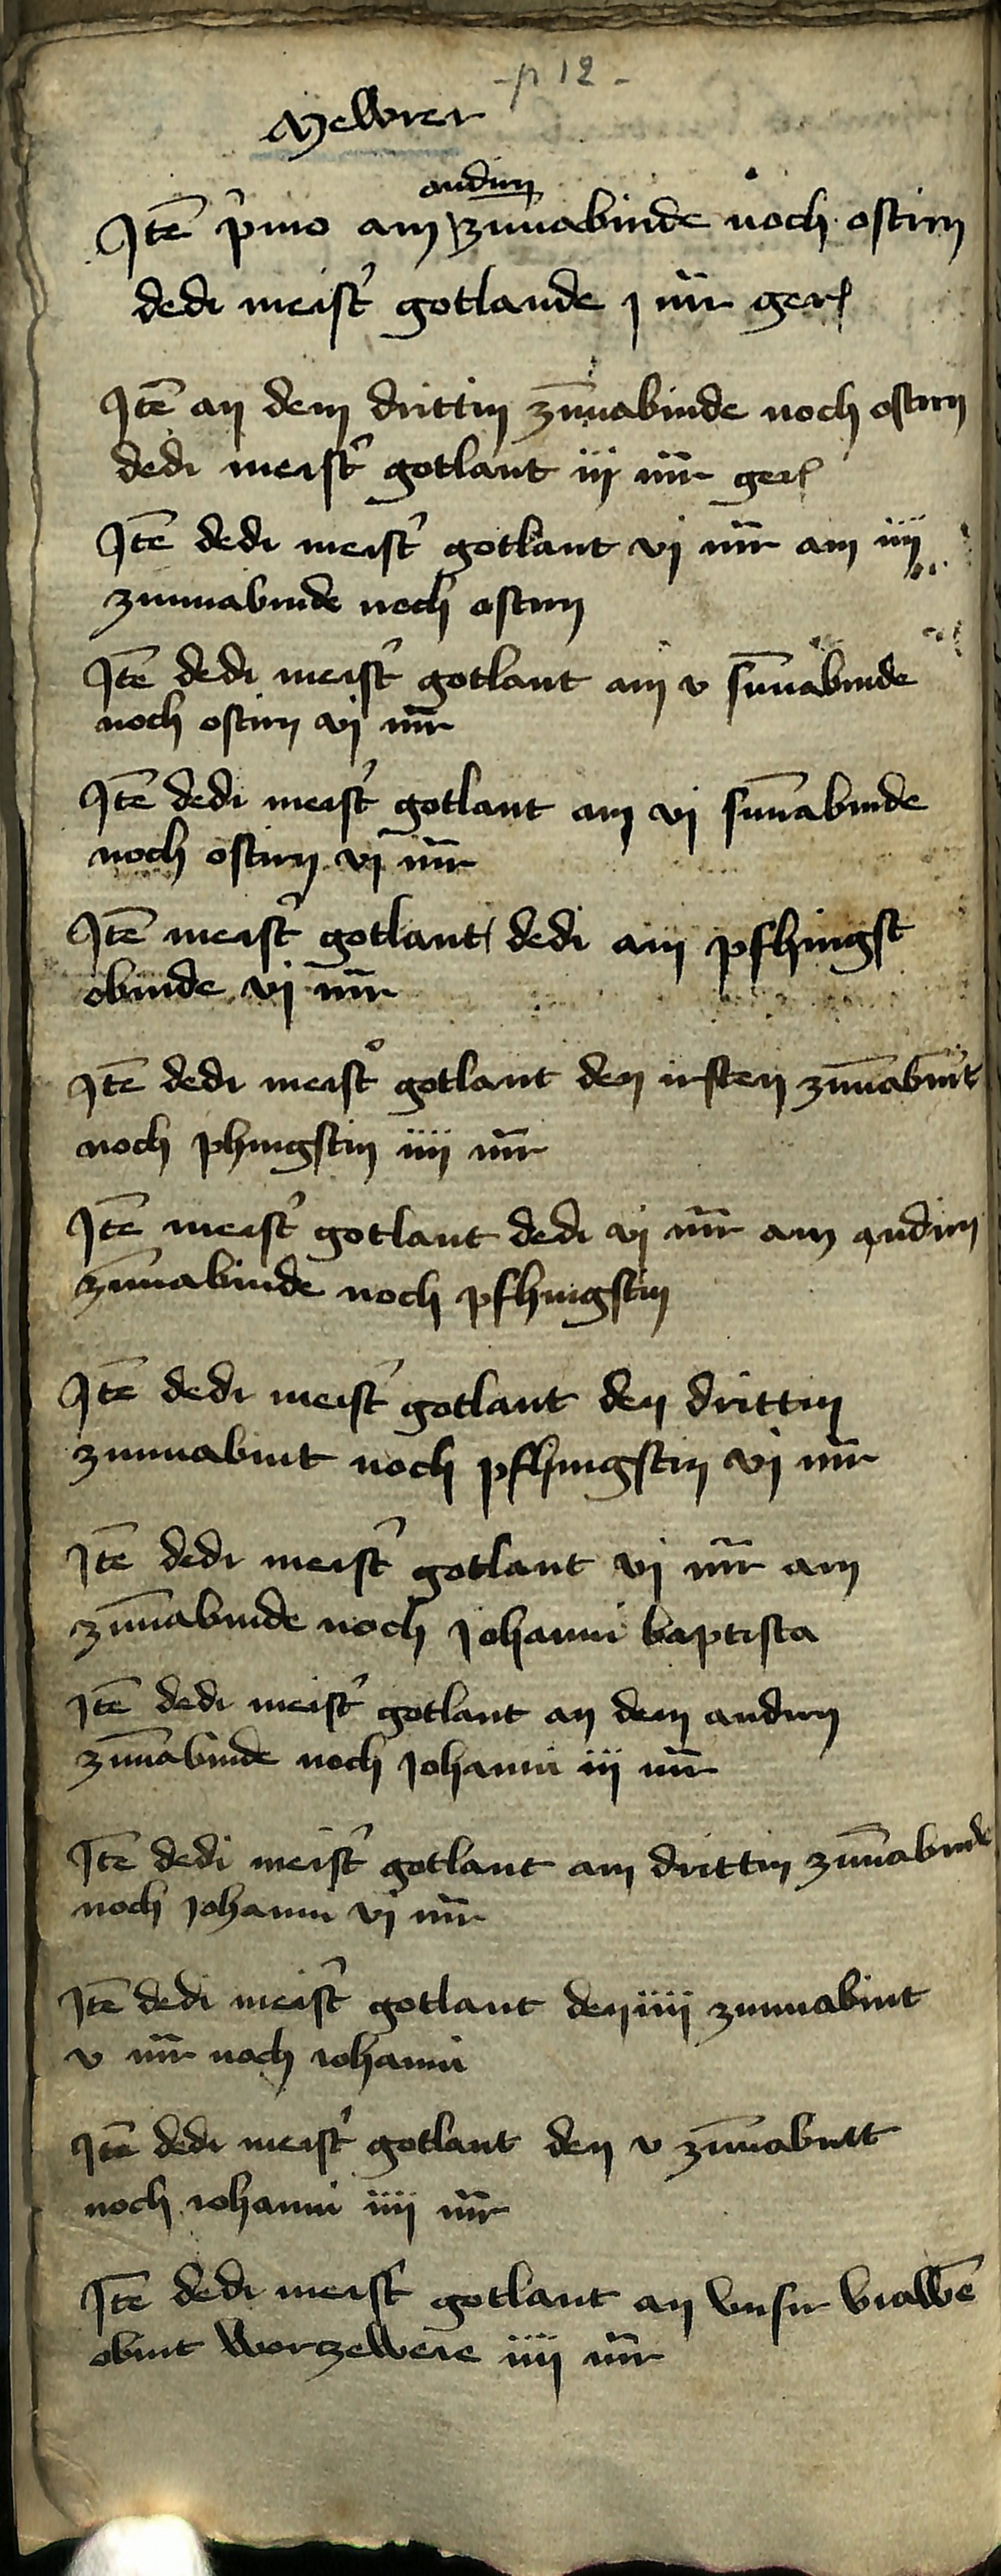 - p 12 -
Mewrer
andirn
Itē p̾mo am zun̄abinde noch ostirn
dedi meist̾ gotlande j mr̄ ger
Itē an dem drittin zun̄abinde noch ostirn
dedi meist̾ gotlant iij mr̄ ger
Itē dedi meist̾ gotlant vj mr̄ am iiij
zunnabinde noch ostirn
Itē dedi meist̾ gotlant am v sun̄abinde
noch ostirn vj mr̄
Itē dedi meist̾ gotlant am vj sun̄abinde
noch ostirn vj mr̄
Itē meist̾ gotlant dedi am pfhingst
obinde vj mr̄
Itē dedi meist̾ gotlant den irsten zun̄abint
noch phingstin iiij mr̄
Itē meist̾ gotlant dedi vj mr̄ am andirn
zun̄abinde noch pfhingstin
Itē dedi meist̾ gotlant den drittin
zunnabint noch pfhingstin vj mr̄
Itē dedi meist̾ gotlant vj mr̄ am
zun̄abinde noch Johanni baptista
Itē dedi meist̾ gotlant an dem andirn
zun̄abinde noch Johanni iij mr̄
Itē dedi meist̾ gotlant am drittin zun̄abinde
noch Johanni vj mr̄
Itē dedi meist̾ gotlant den iiij zunnabint
v mr̄ noch iohanni
Itē dedi meist̾ gotlant den v zun̄abintt
noch iohanni iiij mr̄
Itē dedi meist̾ gotlant an vnsir vrawē
obint worzeweie iiij mr̄